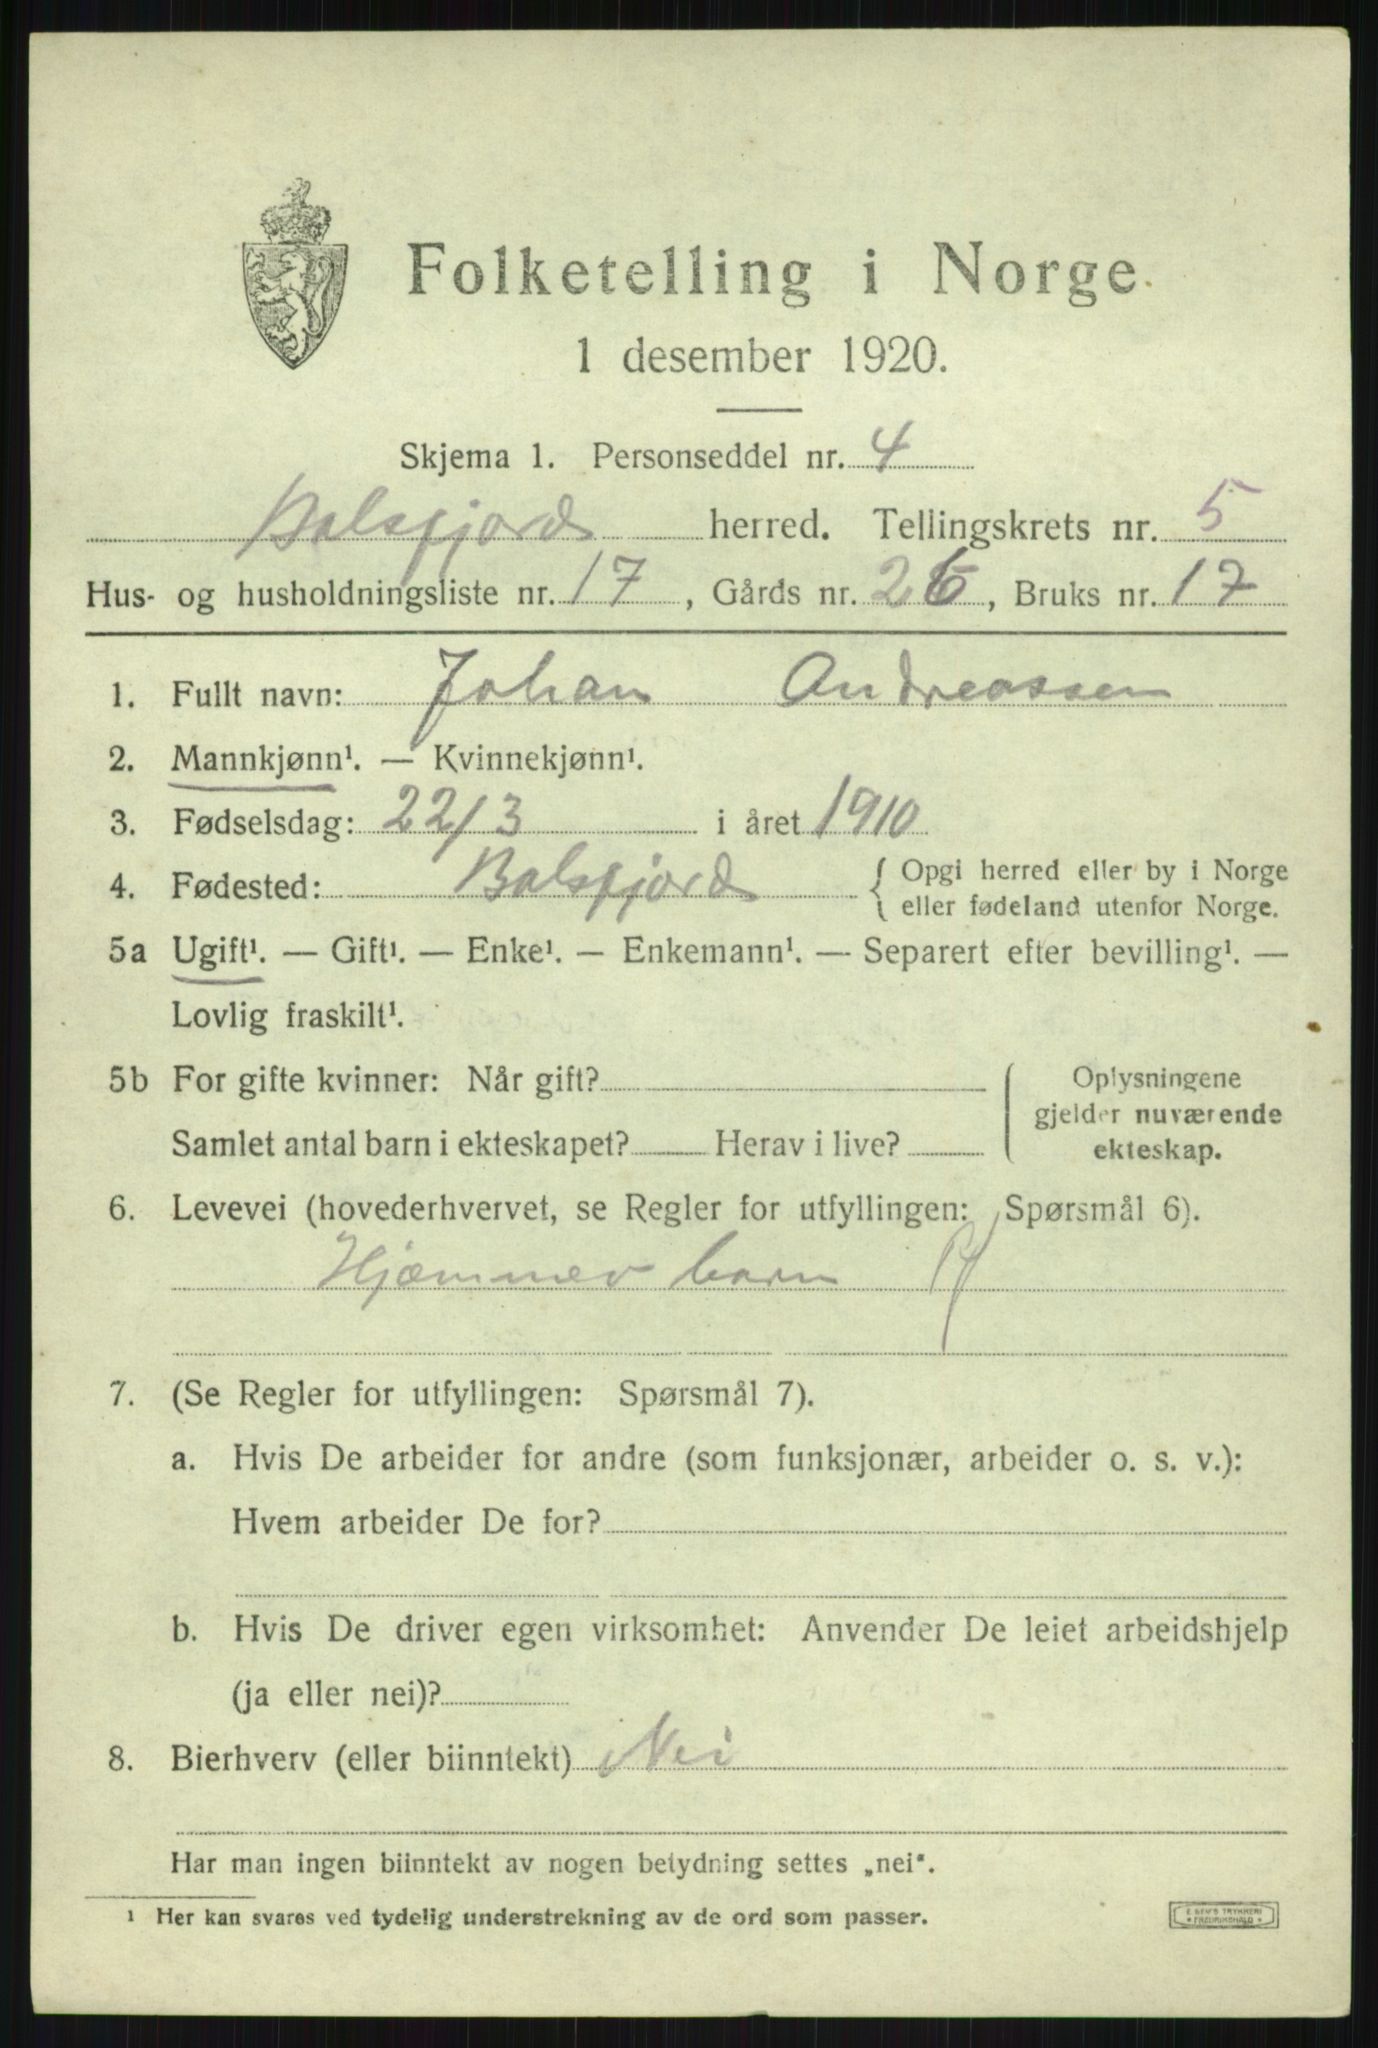 Folketelling i Norge.
1 desember 1920.
Skjema 1. Personseddel nr. 4
Balsfjord herred. Tellingskrets nr. 5
Hus- og husholdningsliste nr. 17, Gårds nr. 26, Bruks nr. 17
1. Fullt navn: Johan Andreassen
2. Mannkjønn¹. — Kvinnekjønn¹.
3. Fødselsdag: 22/3 i året 1910
4. Fødested: Balsfjord { Opgi herred eller by i Norge
eller fødeland utenfor Norge.
5a Ugift¹. — Gift¹. — Enke¹. — Enkemann¹. — Separert efter bevilling¹. —
Lovlig fraskilt¹.
5b For gifte kvinner: Når gift?
Samlet antal barn i ekteskapet? Herav i live?
Oplysningene
gjelder nuværende
ekteskap.
6. Levevei (hovederhvervet, se Regler for utfyllingen: Spørsmål 6).
Hjæmmev barn
7. (Se Regler for utfyllingen: Spørsmål 7).
a. Hvis De arbeider for andre (som funksjonær, arbeider o. s. v.):
Hvem arbeider De for?
b. Hvis De driver egen virksomhet: Anvender De leiet arbeidshjelp
(ja eller nei)?
8. Bierhverv (eller biinntekt) Nei
Har man ingen biinntekt av nogen betydning settes „nei".
¹ Her kan svares ved tydelig understrekning av de ord som passer.
E. SEM'S TRYKKERI
FREDRIKSHALD